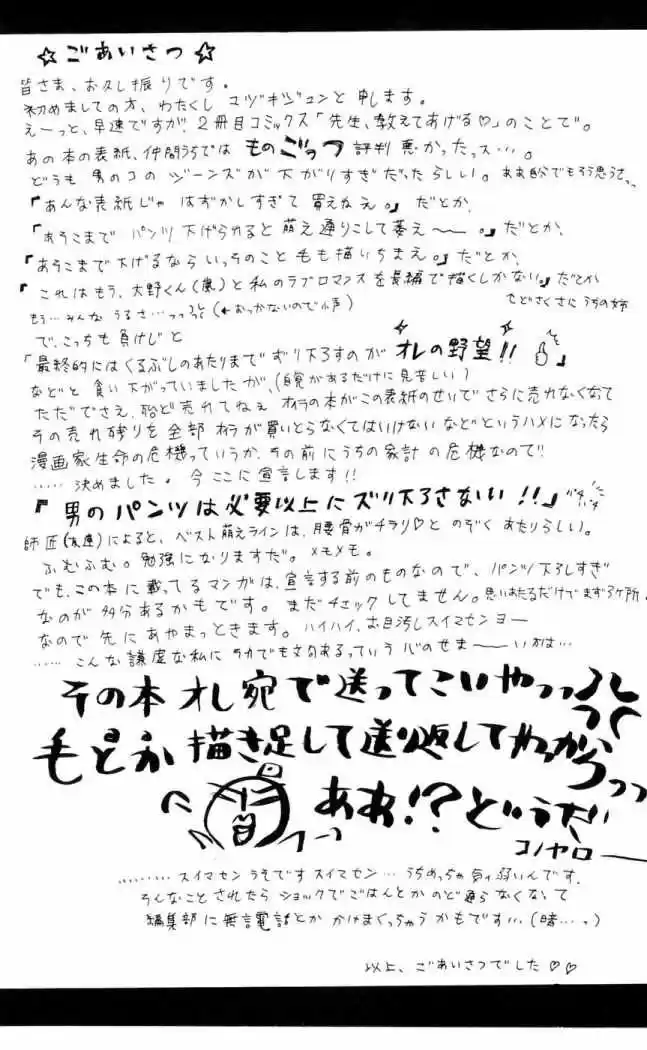 ☆ごあいさつ☆
皆さま、お久し振りです。
初めましての方、わたくし コヅキジュンと申します。
えーっと、早速ですが、2冊目コミックス「先生、教えてあげる♡」のことで。
あの本の表紙、仲間うちでは ものごっつ 評判悪かったっス…。
どうも 男のコの ジーンズが 下がりすぎだったらしい。
『あんな表紙じゃ はずかしすぎて 買えねえ。』だとか、
『あそこまで パンツ下げられると 萌え通りこして萎え〜〜。』だとか、
『あそこまで下げるなら いっそのこと 毛も描いちまえ。』だとか、
『これはもう、大野くん(嵐)と私のラブロマンスを長編で描くしかない。』だとか
どさくさに うちの姉
もう…みんな うるさ…っっ (←おっかないので小声)
で、こっちも負けじと
「最終的にはくるぶしのあたりまで ずり下ろすのが オレの野望!!」
などと 食い下がっていましたが、(自覚があるだけに見苦しい)
ただでさえ、殆ど売れてねえ オイラの本がこの表紙のせいで さらに売れなくなって
その売れ残りを全部 オイラが買いとらなくてはいけない などというハメになったら
漫画家生命の危機っていうか、その前にうちの家計の危機なので!!
……決めました。今ここに宣言します!!
『男のパンツは必要以上にズリ下ろさない!!』
師匠(友達)によると、ベスト萌えラインは、腰骨がチラリ♡と のぞくあたりらしい。
ふむふむ。勉強になりますだ。メモメモ。
でも、この本に載ってるマンガは、宣言する前のものなので、パンツ下ろしすぎ
なのが 多分あるかもです。まだチェックしてません。思いあたるだけでまず3ケ所。
なので 先に あやまっときます。ハイハイ、お目汚しスイマセンヨー
……こんな謙虚な私に それでも文句あるっていう 心のせま〜〜いかたは…
その本 オレ宛で送ってこいやっっ
毛とか描き足して送り返してやっからっっ
ああ!?どうだ
コノヤロー
………スイマセン うそです スイマセン…うちめっちゃ気ィ弱いんです。
そんなことされたら ショックでごはんとか のど通らなくなって
編集部に無言電話とか かけまくっちゃうかもです…(暗…っ)
以上、ごあいさつでした♡♡